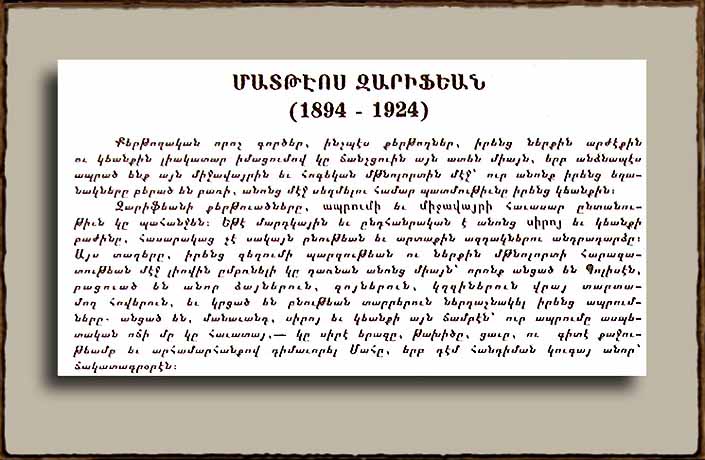 ՄԱՏԹԷՈՍ ԶԱՐԻՖԵԱՆ
(1894 - 1924)
Քերթողական որոշ գործեր, ինչպէս քերթողներ, իրենց ներքին արժէքին
ու կեանքին լիակատար իմացումով կը ճանչցուին այն ատեն միայն, երբ անձնապէս
ապրած ենք այն միջավայրին եւ հոգեկան մթնոլորտին մէջ՝ ուր անոնք իրենց եղա-
նակները բերած են բառի, անոնց մէջ սեղմելու համար պատմութիւնը իրենց կեանքին։
Զարիֆեանի քերթուածները, ապրումի եւ միջավայրի հաւասար ընտանու-
թիւն կը պահանջեն։ Եթէ մարդկային եւ ընդհանրական է անոնց սիրոյ եւ կեանքի
բաժինը, հասարակաց չէ սակայն բնութեան եւ արտաքին ազդակներու անդրադարձը։
Այս տաղերը, իրենց զեղումի պարզութեան ու ներքին մթնոլորտի հարազա-
տութեան մէջ լիովին ըմբռնելի կը դառնան անոնց միայն՝ որոնք անցած են Պոլիսէն,
բացուած են անոր ձայներուն, գոյներուն, կղզիներուն վրայ տարտա-
մող հովերուն, եւ կրցած են բնութեան տարրերուն ներդաշնակել իրենց ապրում-
ները. անցած են, մանաւանդ, սիրոյ եւ կեանքի այն ճամբէն՝ ուր ապրումը ասպե-
տական ոճի մը կը հաւատայ,— կը սիրէ երազը, թախիծը, ցաւը, ու գիտէ քաջու-
թեամբ եւ արհամարհանքով դիմաւորել Մահը, երբ դէմ հանդիման կուգայ անոր՝
ճակատագրօրէն։